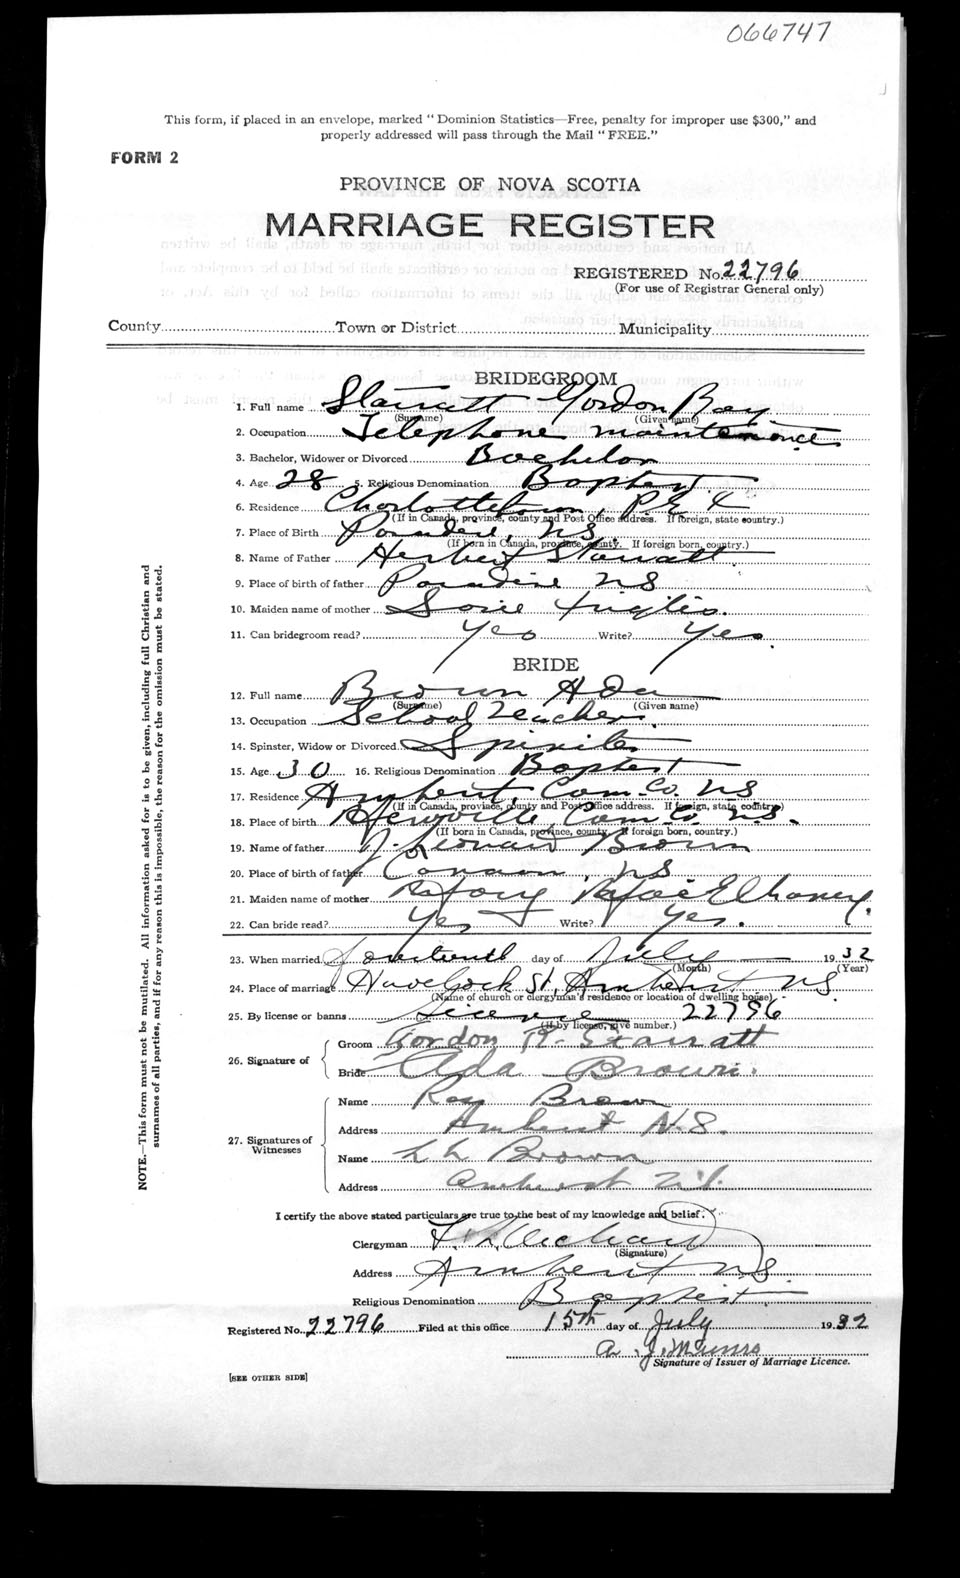 066747
This form, if placed in an envelope, marked "Dominion Statistics—Free, penalty for improper use $300," and
properly addressed will pass through the Mail "FREE."
FORM 2
PROVINCE OF NOVA SCOTIA
MARRIAGE REGISTER
REGISTERED No. 22796
(For use of Registrar General only)
County Town or District Municipality
BRIDEGROOM
1. Full name Starratt Gordon Ray
(Surname) (Given name)
2. Occupation Telephone maintenance
3. Bachelor, Widower or Divorced Bachelor
4. Age 28 5. Religious Denomination Baptist
6. Residence Charlottetown, P E I
(If in Canada, province, county and Post Office address. If foreign, state country.)
7. Place of Birth Paradise, NS.
(If born in Canada, province, county. If foreign born, country.)
8. Name of Father Herbert Starratt
9. Place of birth of father Paradise NS
10. Maiden name of mother Inglis.
11. Can bridegroom read? Yes Write? Yes.
BRIDE
12. Full name Brown Ada
(Surname) (Given name)
13. Occupation School Teacher.
14. Spinster, Widow or Divorced Spinster
15. Age 30 16. Religious Denomination Baptist
17. Residence Amherst, Cum. Co. NS
(If in Canada, province, county and Post Office address. If foreign, state country)
18. Place of birth Cum Co. N.S.
(If born in Canada, province, county. If foreign born, country.)
19. Name of father J. Leonard Brown
20. Place of birth of father Canaan, NS
21. Maiden name of mother
22. Can bride read? Yes Write? Yes.
23. When married fourteenth day of July 1932
(Month) (Year)
24. Place of marriage Havelock St, Amherst NS.
(Name of church or clergyman's residence or location of dwelling house)
25. By license or banns License 22796
(If by license, give number.)
26. Signature of Groom Gordon R. Starratt
Bride Ada Brown.
27. Signatures of Witnesses
Name Ray Brown
Address Amherst N.S.
Name L L Brown
Address Amherst N.S.
I certify the above stated particulars are true to the best of my knowledge and belief.
Clergyman
(Signature)
Address Amherst NS.
Religious Denomination Baptist
Registered No. 22796 Filed at this office 15th day of July 1932
A. J. Munro
Signature of Issuer of Marriage Licence.
[SEE OTHER SIDE]
NOTE.—This form must not be mutilated. All information asked for is to be given, including full Christian and
surnames of all parties, and if for any reason this is impossible, the reason for the omission must be stated.